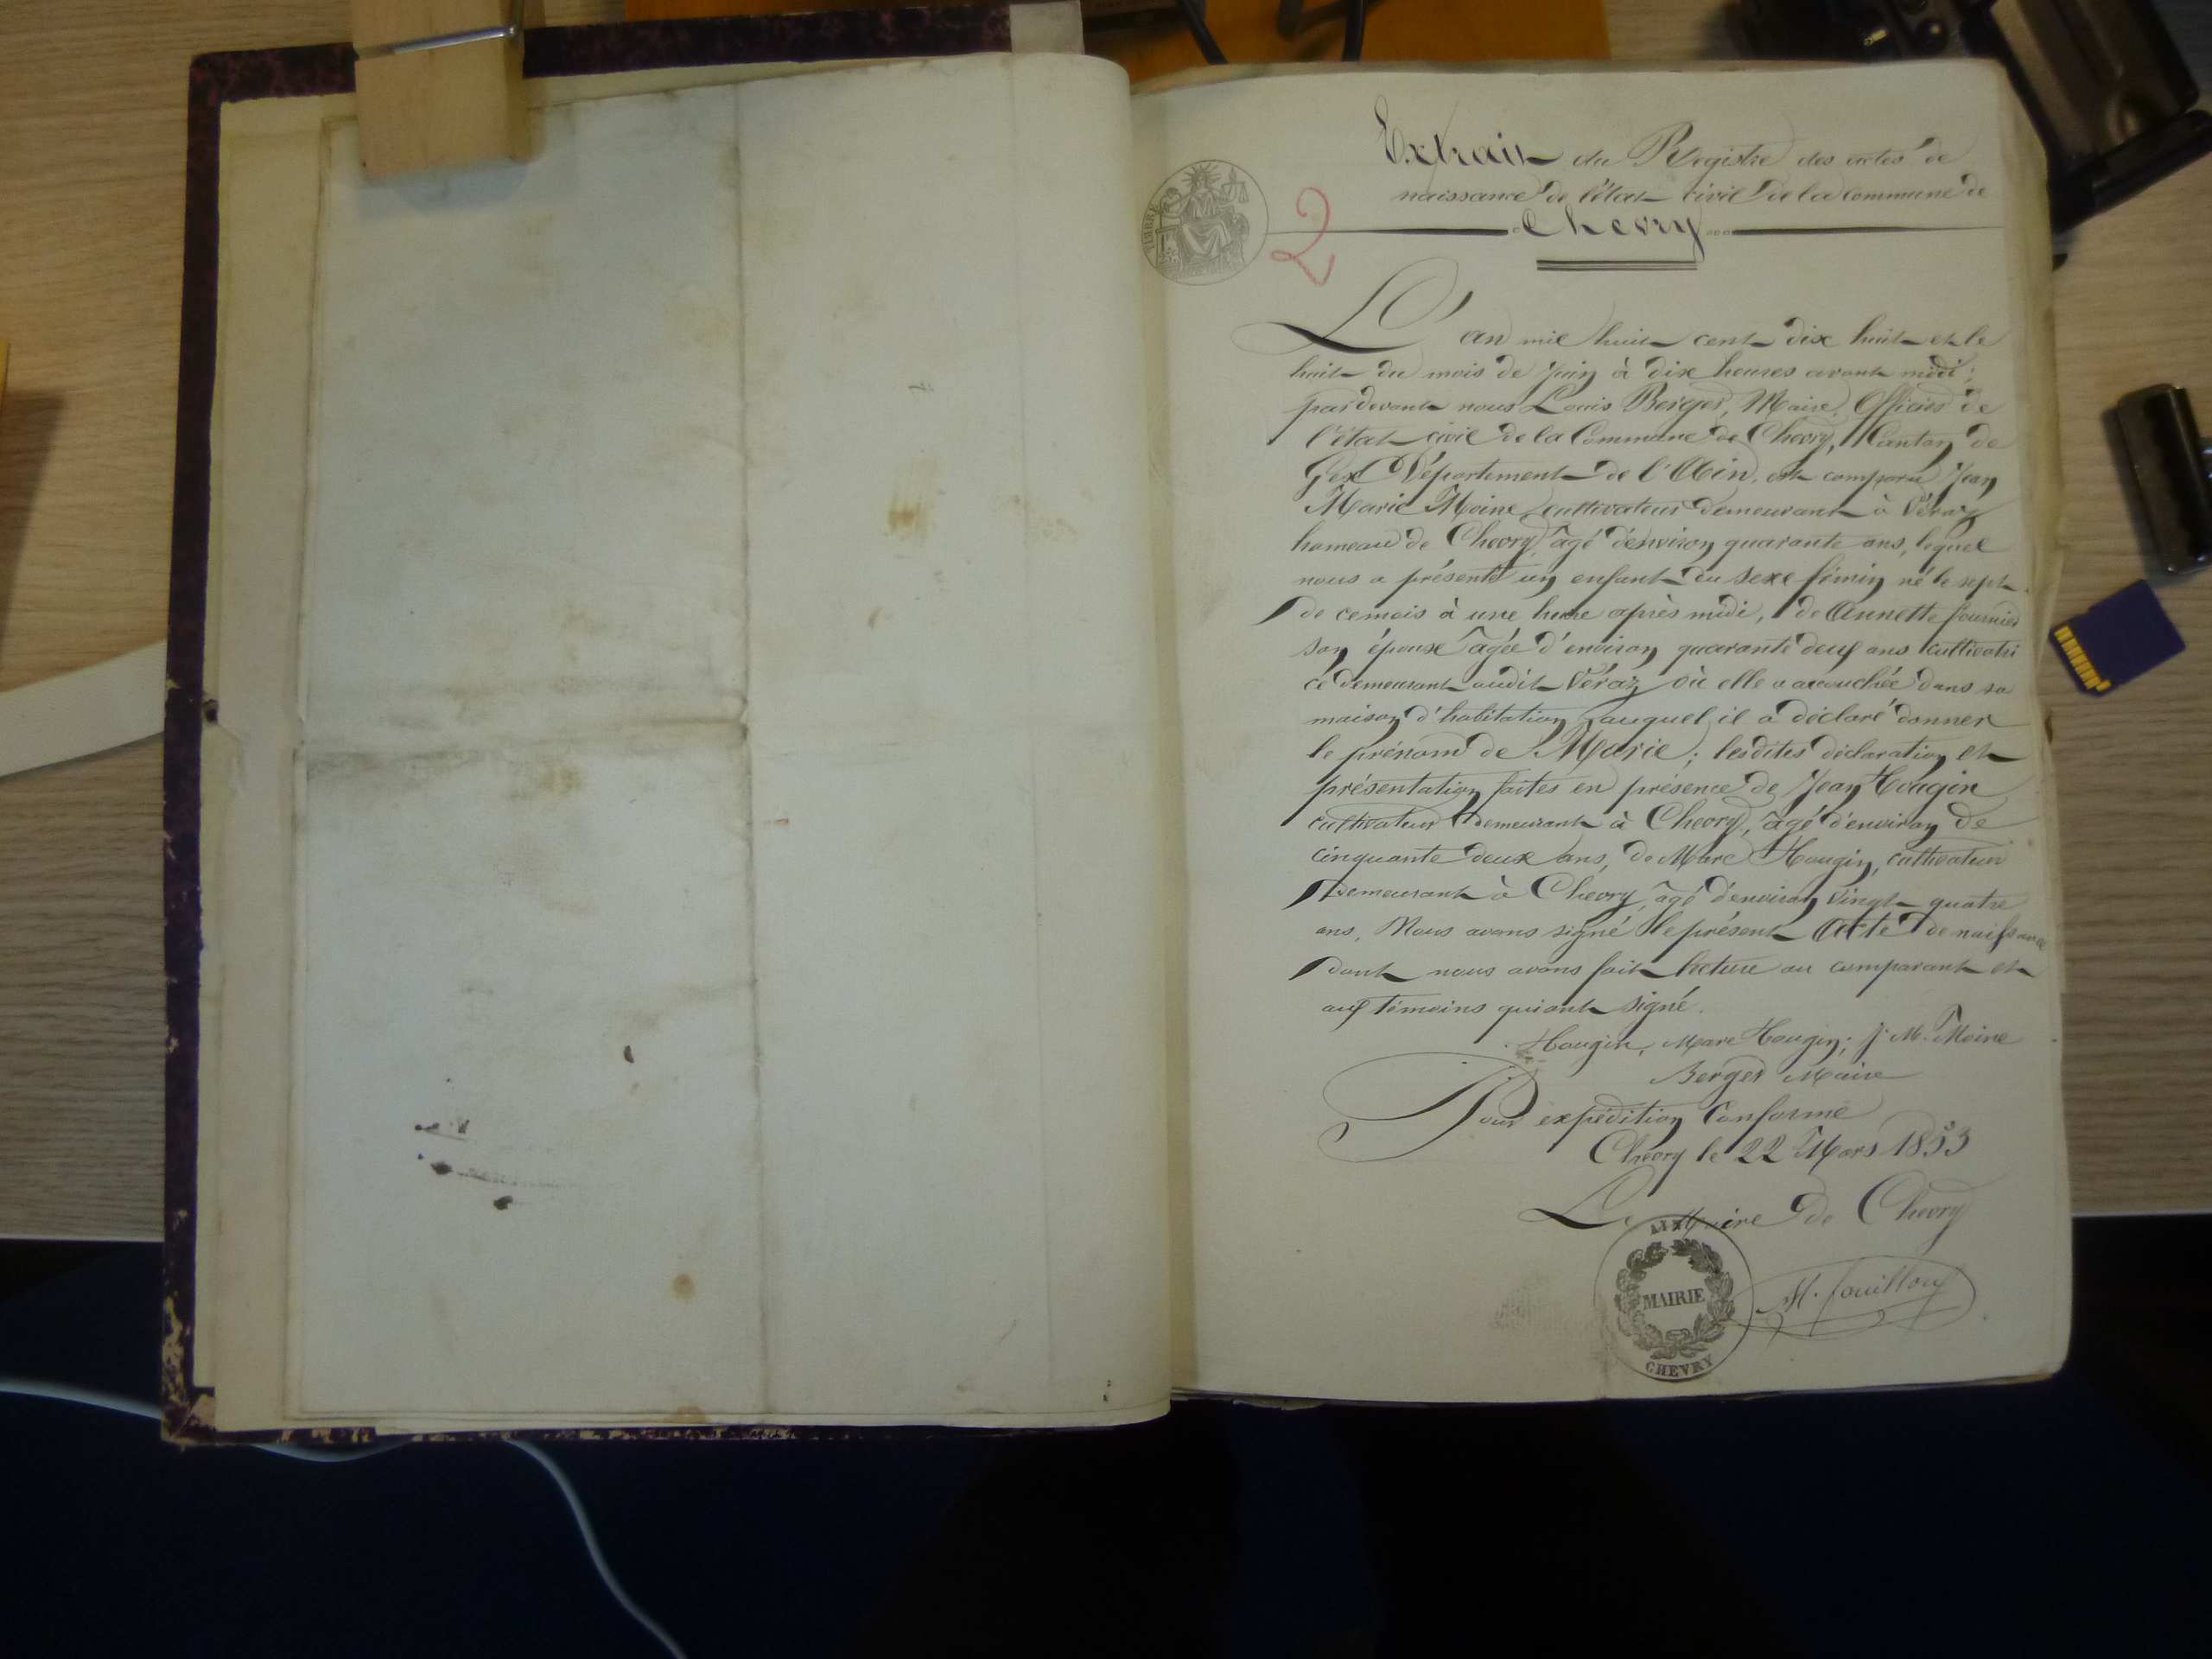 Extrait du Registre des actes de
naissance de l'état civil de la commune de
Chevry
2
L'an mil huit cent dix huit et le
huit du mois de Juin à dix heures avant midi;
pardevant nous Louis Berger, Maire, Officier de
l'état civil de la Commune de Chevry, Canton de
Gex Département de l'Ain, est comparu Jean
Marie Moine, cultivateur demeurant à Véraz
hameau de Chevry, âgé d'environ quarante ans, lequel
nous a présenté un enfant du sexe fémin né le sept
de ce mois à une heure après midi, de Annette fournier
son épouse âgée d'environ quarante deux ans cultivatri
ce demeurant audit Véraz où elle a accouchée dans sa
maison d'habitation, auquel il a déclaré donner
le prénom de Marie; lesdites déclaration et
présentation faites en présence de Jean Hougin
cultivateur demeurant à Chevry, âgé d'environ de
cinquante deux ans, de Marc Hougin, cultivateur
demeurant à Chevry, âgé d'environ vingt quatre
ans, Nous avons signé le présent Acte de naissance
dont nous avons fait lecture au comparant et
aux témoins qui ont signé.
Hougin, Marc Hougin; J. M. Moine
Berger Maire
Pour expédition Conforme
Chevry le 22 Mars 1853
Le Maire de Chevry
AIN
MAIRIE
CHEVRY